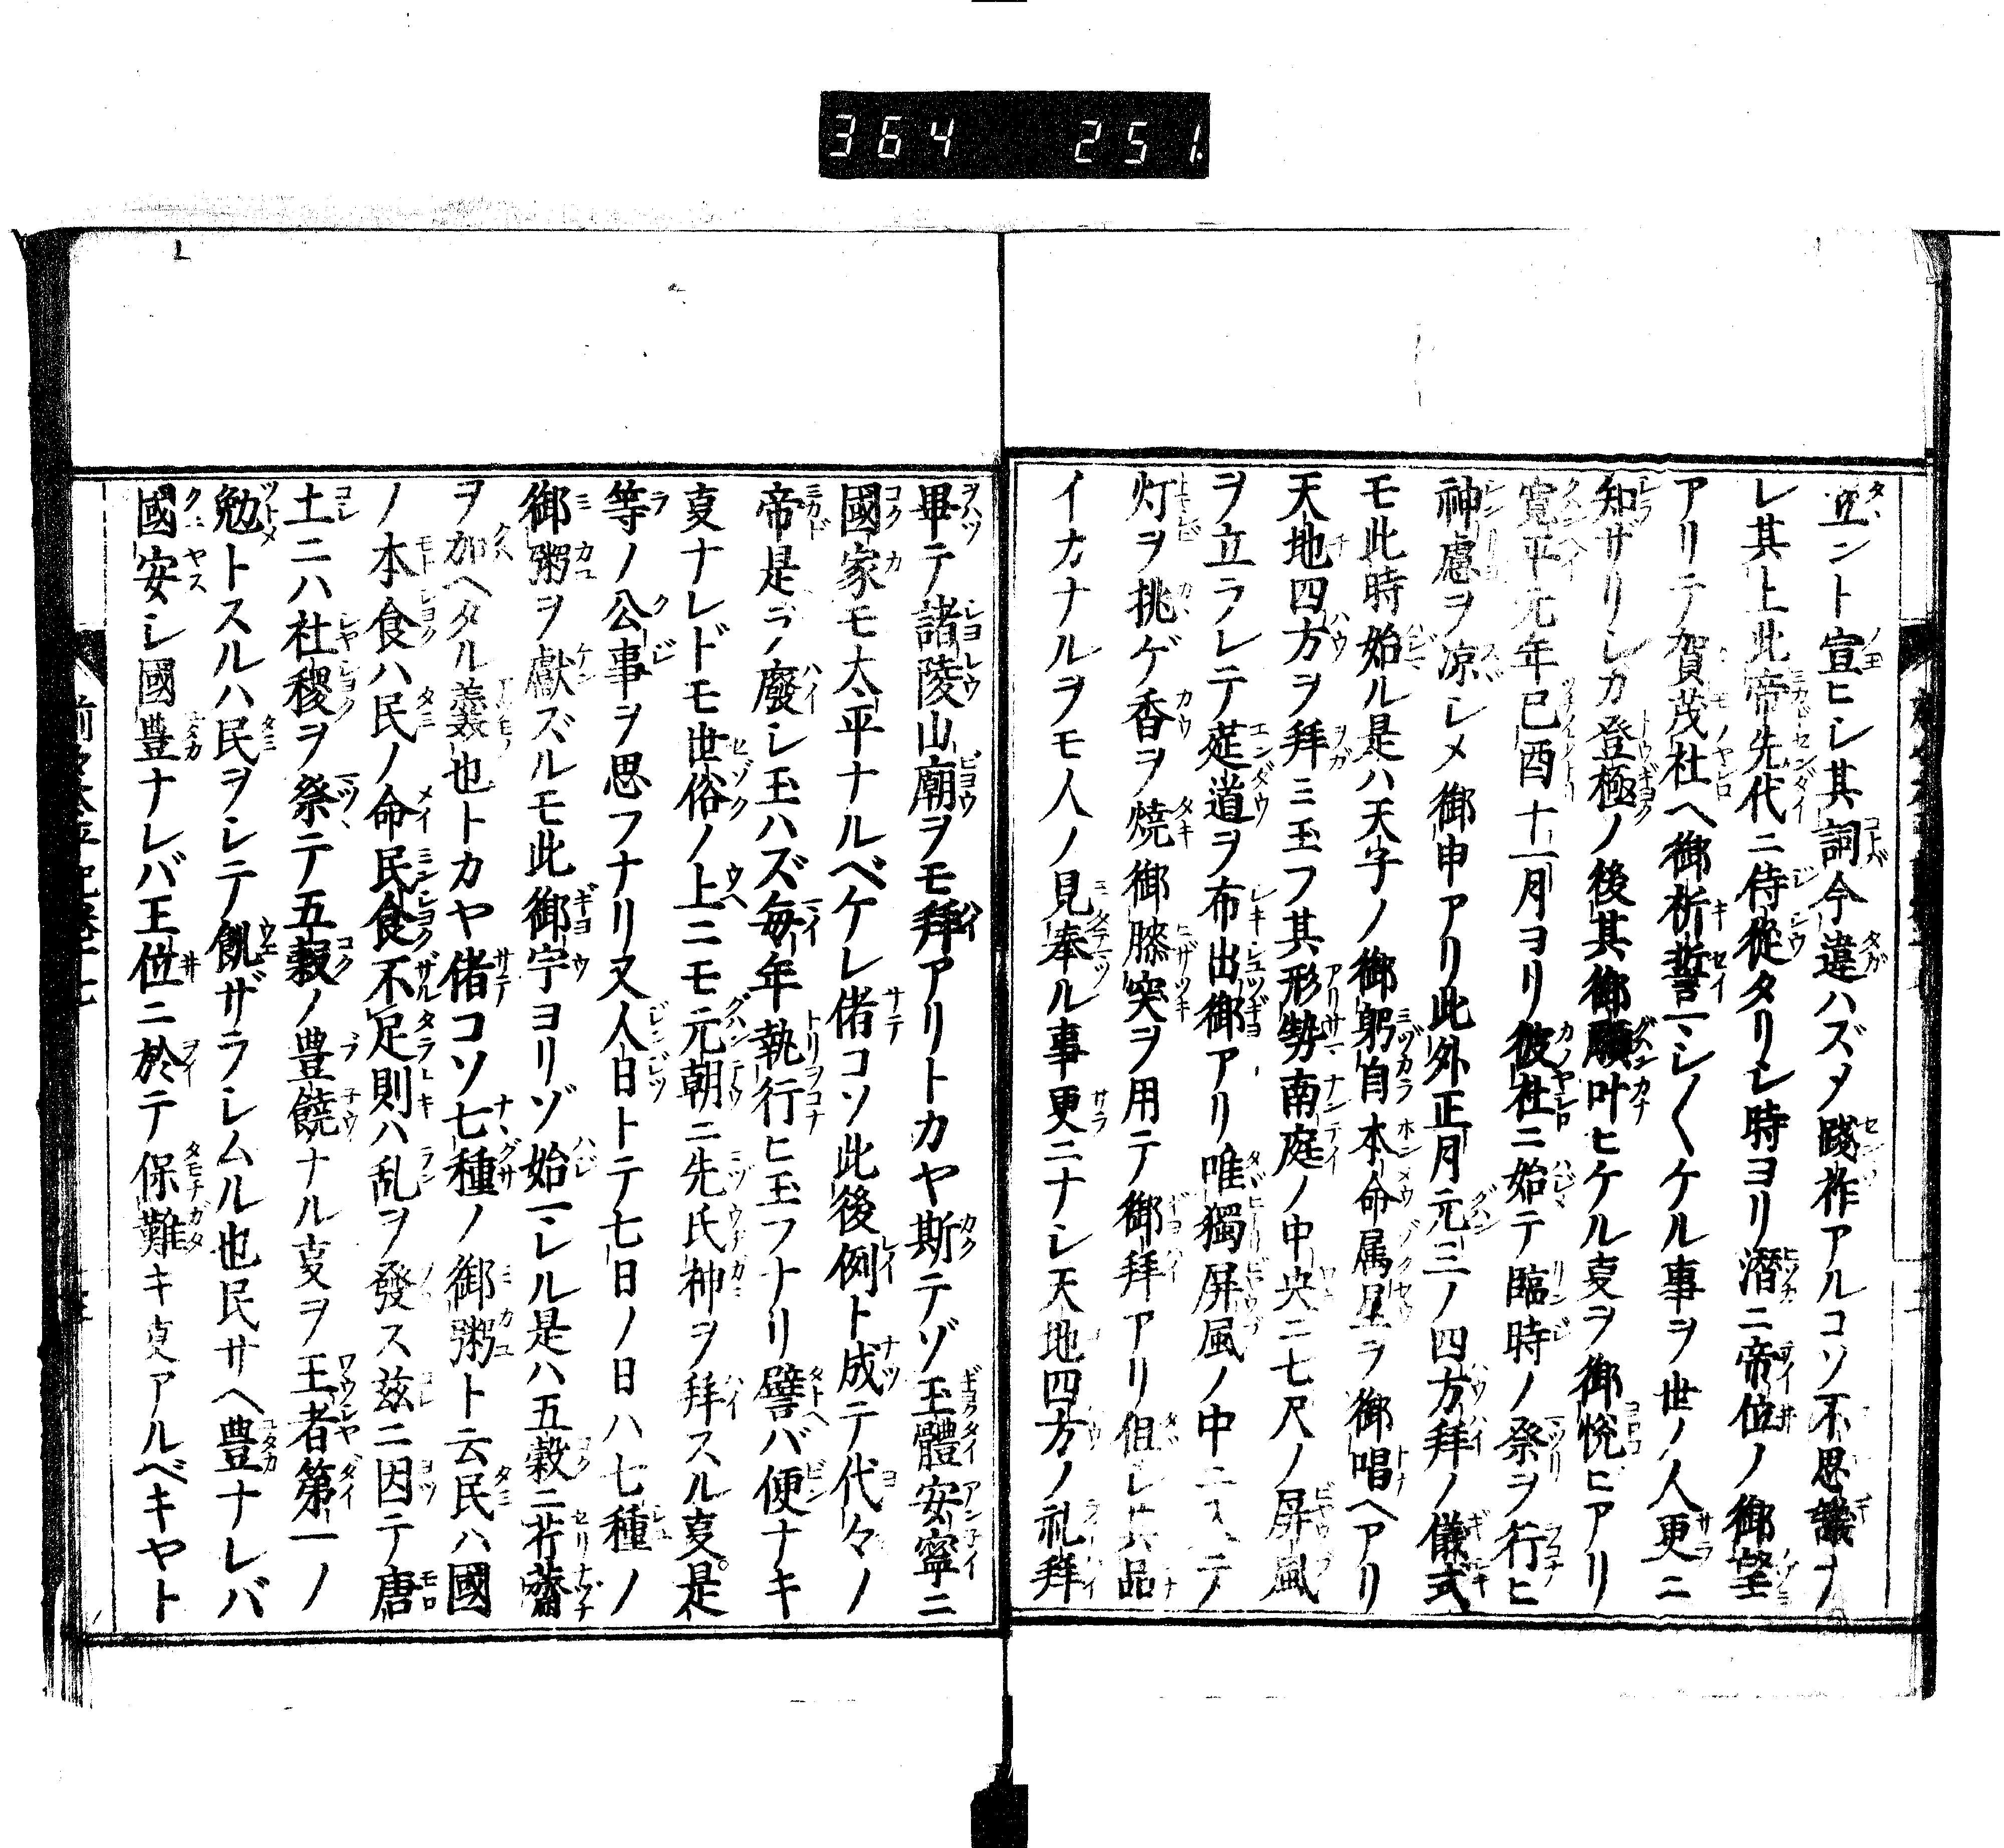 364 251
立ント宣ヒシ其詞今違ハズメ踐祚アルコソ不思議ナ
レ其上此帝先代ニ侍從タリシ時ヨリ潜ニ帝位ノ御望
アリテ賀茂社ヘ御祈誓マシ〱ケル事ヲ世ノ人更ニ
知ザリシカ登極ノ後其御願叶ヒケル叓ヲ御悅ヒアリ
寛平元年己酉十一月ヨリ彼社ニ始テ臨時ノ祭ヲ行ヒ
神慮ヲ凉シメ御申アリ此外正月元三ノ四方拜ノ儀式
モ此時始ル是ハ天子ノ御躬自本命属星ヲ御唱ヘアリ
天地四方ヲ拜ミ玉フ其形勢南庭ノ中央ニ七尺ノ屏風
ヲ立ラレテ莚道ヲ布出御アリ唯獨屏風ノ中ニテ
灯ヲ挑ゲ香ヲ焼御膝突ヲ用テ御拜アリ但シ其品
イカナルヲモ人ノ見奉ル事更ニナシ天地四方ノ礼拜
畢テ諸陵山廟ヲモ拜アリトカヤ斯テゾ玉體安寧ニ
國家モ太平ナルベケレ偖コソ此後例ト成テ代々ノ
帝是ヲ廢シ玉ハズ每年執行ヒ玉フナリ譬バ便ナキ
叓ナレドモ世俗ノ上ニモ元朝ニ先氏神ヲ拜スル叓是
等ノ公事ヲ思フナリ又人日トテ七日ノ日ハ七種ノ
御粥ヲ獻ズルモ此御宇ヨリゾ始マレル是ハ五穀ニ芹薺
ヲ加ヘタル羹也トカヤ偖コソ七種ノ御粥ト云民ハ國
ノ本食ハ民ノ命民食不足則ハ乱ヲ發ス兹ニ因テ唐
土ニハ社稷ヲ祭テ五穀ノ豊饒ナル叓ヲ王者第一ノ
勉トスルハ民ヲシテ飢ザラシムル也民サヘ豊ナレバ
國安シ國豊ナレバ王位ニ於テ保難キ叓アルベキヤト